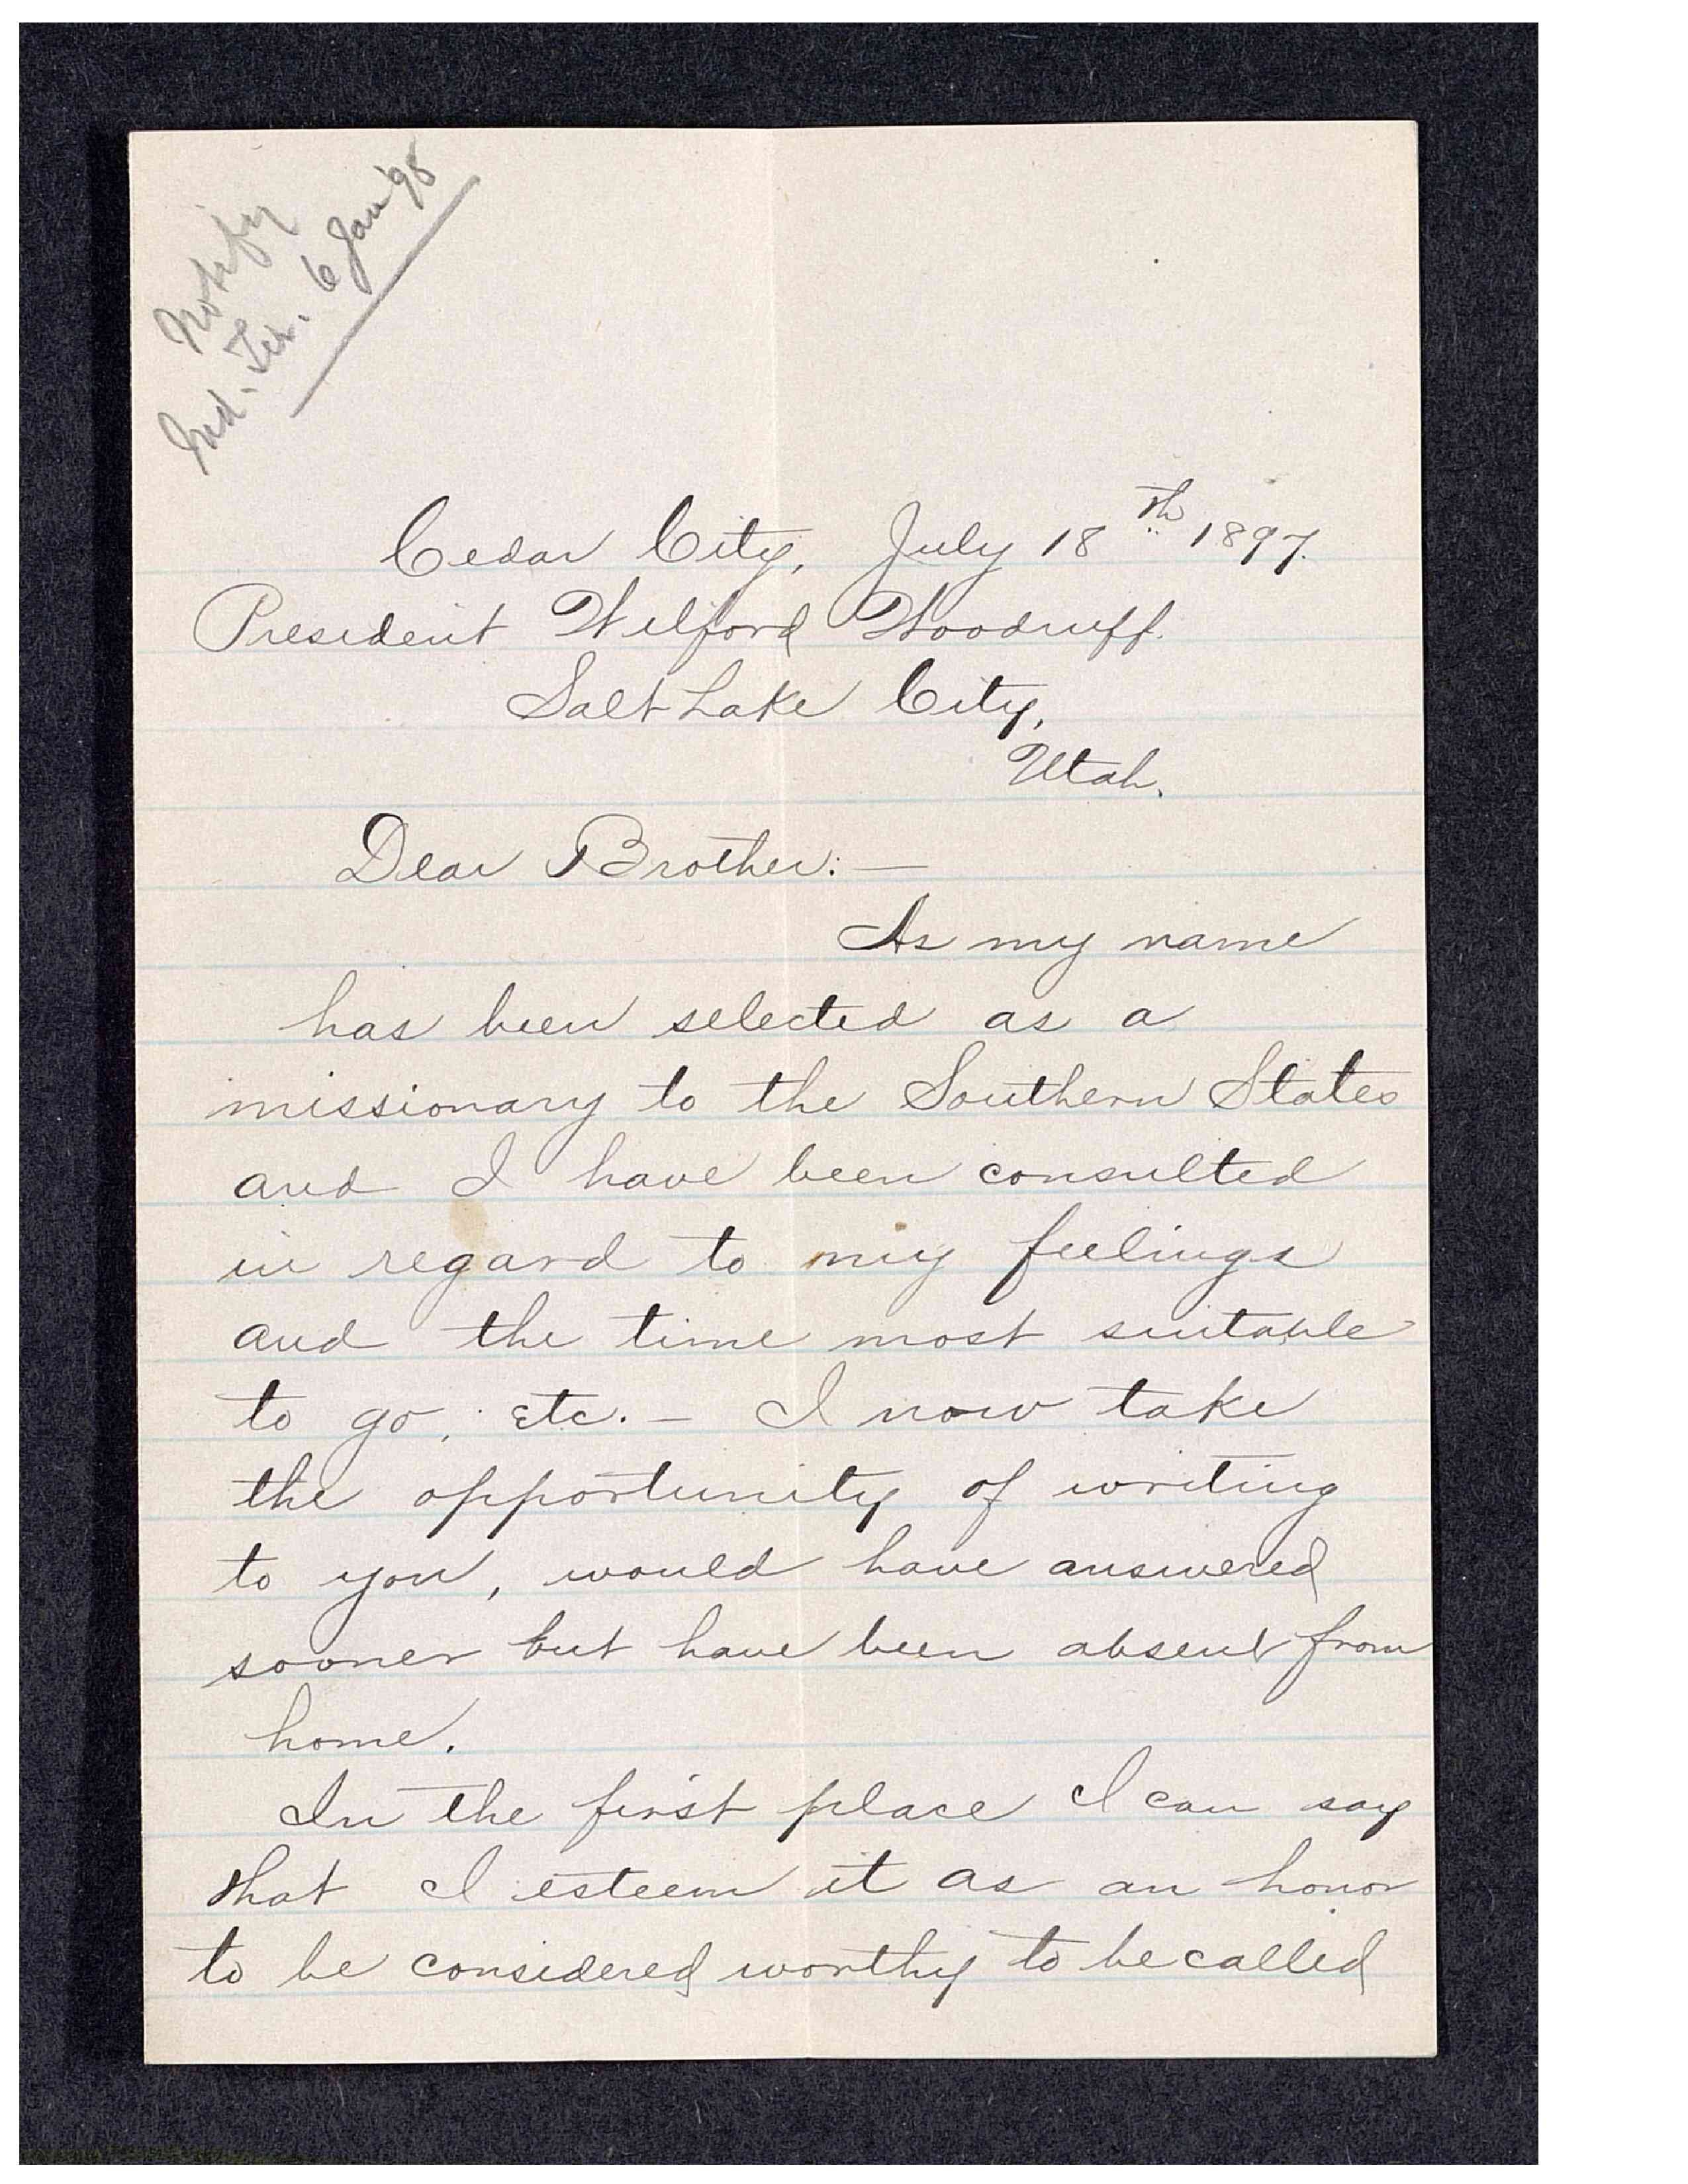 Notify
Ind. Ter. 6 Jan '98
Cedar City, July 18th 1897.
President Wilford Woodruff.
Salt Lake City,
Utah.
Dear Brother:—
As my name
has been selected as a
missionary to the Southern States
and I have been consulted
in regard to my feelings
and the time most suitable
to go, etc.— I now take
the opportunity of writing
to you, would have answered
sooner but have been absent from
home.
In the first place I can say
that I esteem it as an honor
to be considered worthy to be called